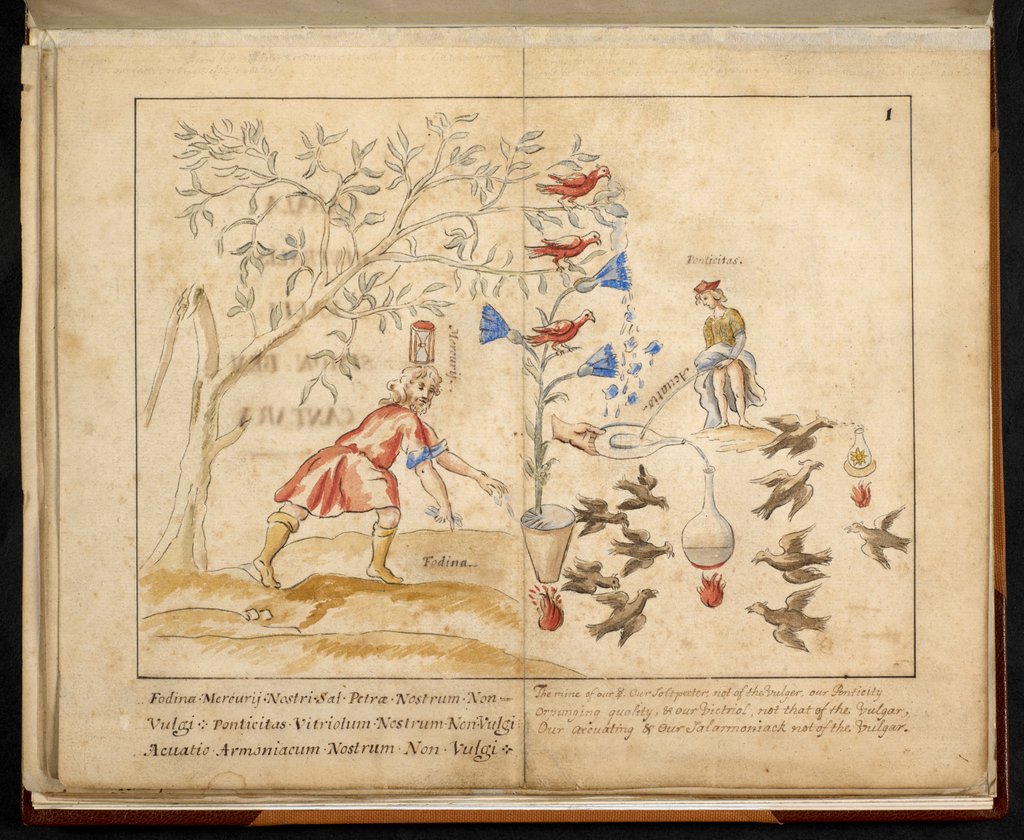 1
Ponticitas.
Mercurij.
Acuatio
Fodina
Fodina · Mercurij · Nostri · Sal · Petræ · Nostrum · Non
Vulgi ÷ Ponticitas · Vitriolum · Nostrum · Non Vulgi
Acuatio · Armoniacum · Nostrum · Non · Vulgi ÷
The mine of our ☿. Our Soltpeeter, not of the Vulger, our Ponticity
Orpunging quality, & our Victriol, not that of the Vulgar,
Our accuating & Our Salarmoniack not of the Vulgar.